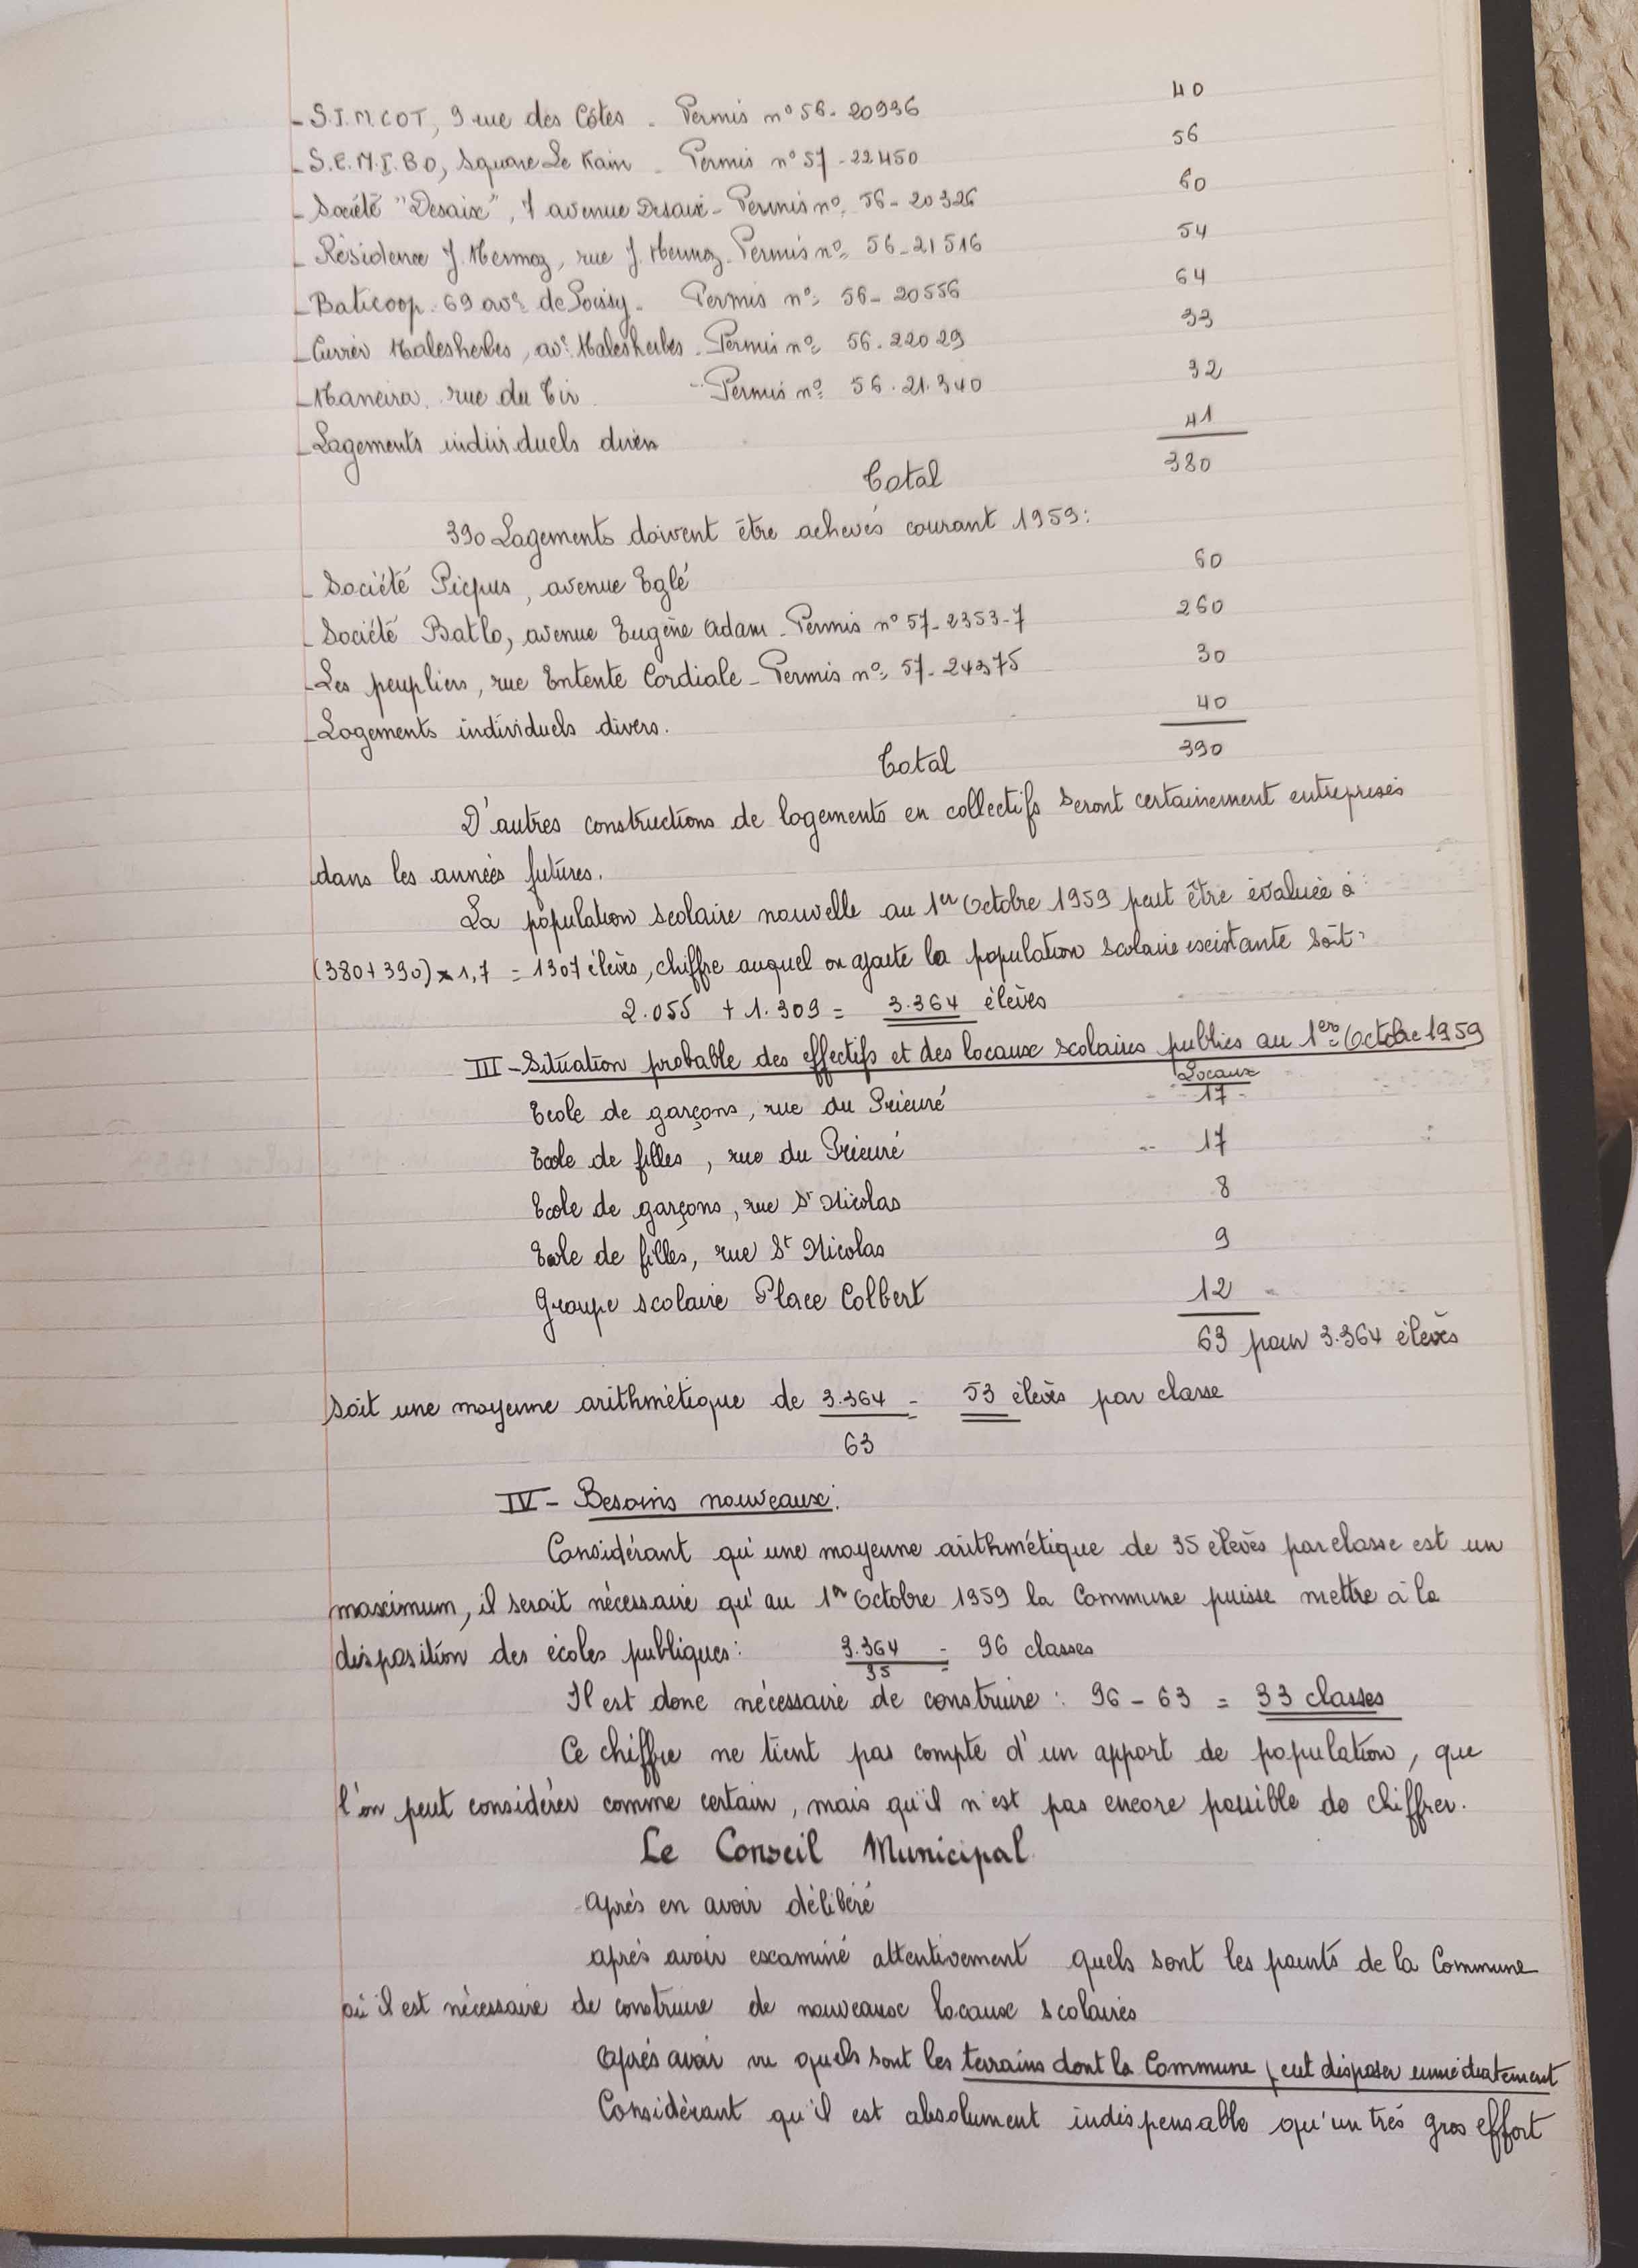 - S.I.M.COT, 9 rue des Côtes - Permis n° 56-20936 40
- S.E.M.I.BO, Square Le Kain - Permis n° 57-22450 56
- Société "Desaix", 7 avenue Desaix - Permis n° 56-20326 60
- Résidence J. Mermoz, rue J. Mermoz - Permis n° 56-21516 54
- Baticoop. 69 avᵉ de Poissy - Permis n° 56-20556 64
- Malesherbes, avᵉ Malesherbes - Permis n° 56.22029 33
- Maneira, rue du Tir - Permis n° 56.21.340 32
- Logements individuels divers 41
Total 380
390 Logements doivent être achevés courant 1959:
- Société Picpus, avenue Eglé 60
- Société Batlo, avenue Eugène Adam - Permis n° 57-2353-7 260
- Les peupliers, rue Entente Cordiale - Permis n° 57-24375 30
- Logements individuels divers. 40
Total 390
D'autres constructions de logements en collectifs seront certainement entreprises
dans les années futures.
La population scolaire nouvelle au 1er Octobre 1959 peut être évaluée à
(380+390) x 1,7 = 1307 élèves, chiffre auquel on ajoute la population scolaire existante soit:
2.055 + 1.309 = 3.364 élèves
III - Situation probable des effectifs et des locaux scolaires publics au 1er Octobre 1959
Locaux
Ecole de garçons, rue du Prieuré 17
Ecole de filles, rue du Prieuré 17
Ecole de garçons, rue St Nicolas 8
Ecole de filles, rue St Nicolas 9
Groupe scolaire Place Colbert 12
63 pour 3.364 élèves
soit une moyenne arithmétique de 3.364 = 53 élèves par classe
63
IV - Besoins nouveaux:
Considérant qu'une moyenne arithmétique de 35 élèves par classe est un
maximum, il serait nécessaire qu'au 1er Octobre 1959 la Commune puisse mettre à la
disposition des écoles publiques: 3.364 = 96 classes
35
Il est donc nécessaire de construire : 96 - 63 = 33 classes
Ce chiffre ne tient pas compte d'un apport de population, que
l'on peut considérer comme certain, mais qu'il n'est pas encore possible de chiffrer.
Le Conseil Municipal
après en avoir délibéré
après avoir examiné attentivement quels sont les points de la Commune
où il est nécessaire de construire de nouveaux locaux scolaires
Après avoir vu quels sont les terrains dont la Commune peut disposer immédiatement
Considérant qu'il est absolument indispensable qu'un très gros effort